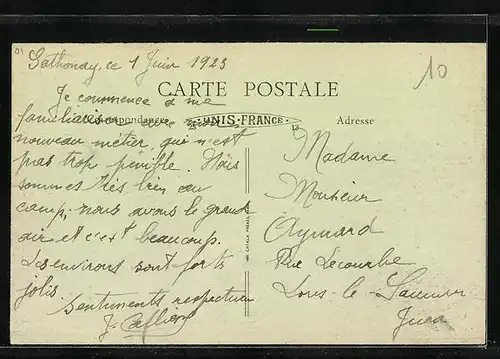 Sathonay, ce 1 Juin 1923
10
CARTE POSTALE
Correspondance
UNIS-FRANCE
Adresse
Je commence à me
familiariser avec
nouveau métier, qui n'est
pas trop pénible. Nous
sommes très bien au
camp, nous avons le grand
air et c'est beaucoup.
Les environs sont forts
jolis.
Sentiments respectueux
Madame
Monsieur
Aymard
Rue Lecourbe
Lons-le-Saunier
Jura